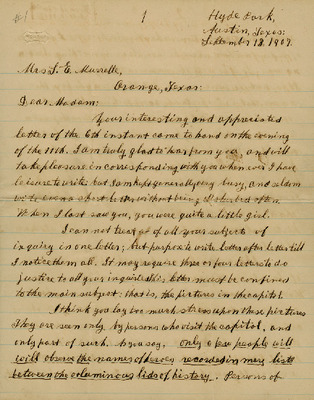 1
Hyde Park,
Austin, Texas:
September 18, 1907.
Mrs. L. E. Murrelle,
Orange, Texas:
Dear Madam:
Your interesting and appreciated
letter of the 6th instant came to hand on the evening
of the 11th. I am truly glad to hear from you, and will
take pleasure in corresponding with you whenever I have
leisure to write but I am kept generally very busy, and seldom
write even a short letter without being disturbed often.
When I last saw you, you were quite a little girl.
I can not treat of all your subjects of
inquiry in one letter; but purpose to write letter after letter till
I notice them all. It may require three or four letters to do
justice to all your inquiries. This letter must be confined
to the main subject: that is, the pictures in the capitol.
I think you lay too much stress upon these pictures
They are seen only by persons who visit the capitol, and
only part of such. As you say, only a few people will
will observe the names of heroes recorded in mere lists
between the voluminous lids of history. Persons of